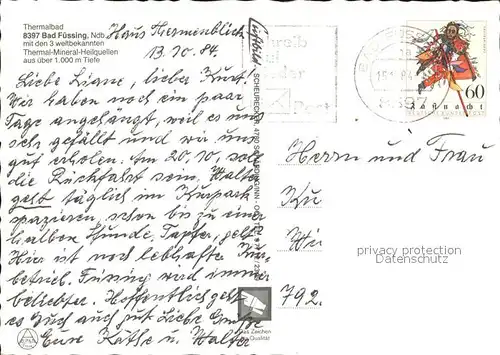 Thermalbad
8397 Bad Füssing, Ndb.
mit den 3 weltbekannten
Thermal-Mineral-Heilquellen
aus über 1.000 m Tiefe
Haus Hermenblick
13.10.84
Liebe Liane, lieber Kurt!
Wir haben noch ein paar
Tage angehängt, weil es uns
sehr gefällt und wir uns
gut erholen. Am 20.10. soll
die Rückfahrt sein. Walter
geht täglich im Kurpark
spazieren, schon bis zu einer
halben Stunde. Tapfer, gelt?
Hier ist noch lebhafter
betrieb. Füssing wird immer
beliebter. Hoffentlich geht
es Euch auch gut. Liebe Grüße
Eure Käthe u. Walter
Luftbild
Schreib
der
Post
60
Herrn und Frau
Ku
Wi
792.
privacy protection
Datenschutz
Das Zeichen
Qualität